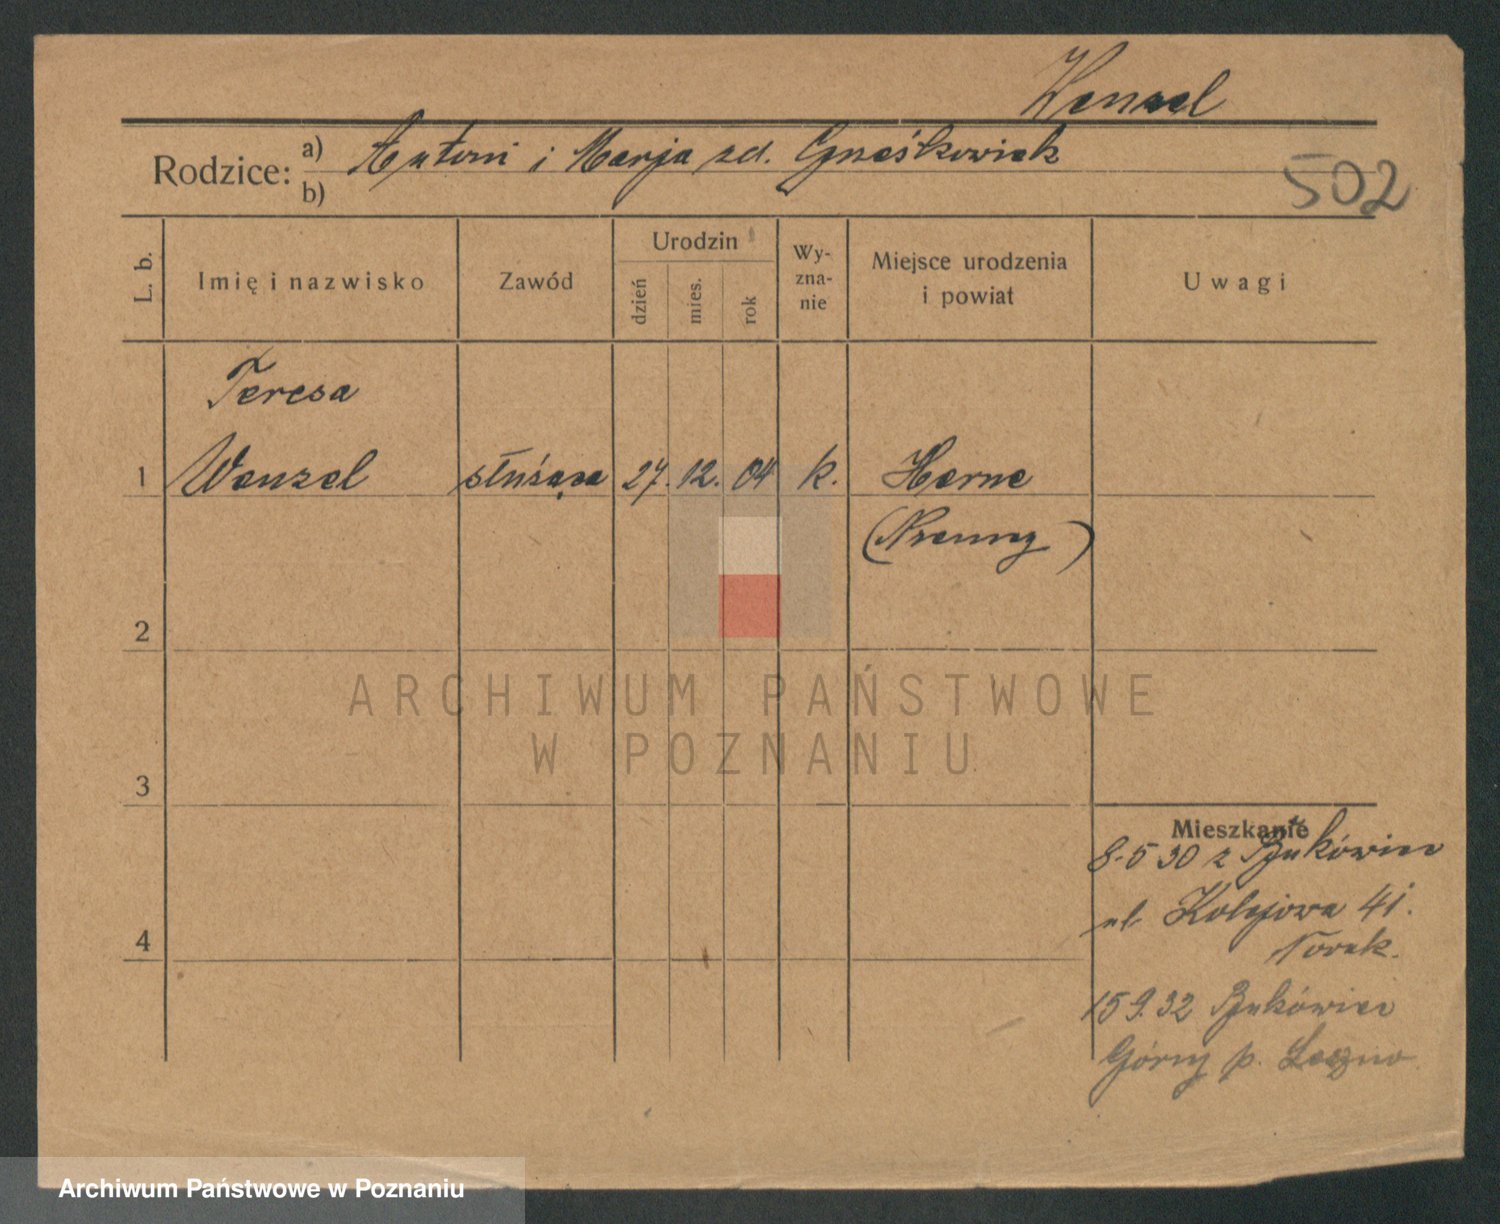 Wenzel
Rodzice: a) Antoni i Marja zd. Grześkowiak
b)
502
L. b.
Imię i nazwisko
Zawód
Urodzin
dzień
mies.
rok
Wy-
zna-
nie
Miejsce urodzenia
i powiat
Uwagi
Teresa
1 Wenzel służąca 27. 12. 04 k. Herne
(Niemcy)
2
ARCHIWUM PAŃSTWOWE
W POZNANIU
3
Mieszkanie
8.5 30 z Bukówiec
ul. Kolejowa 41.
Nowak.
4
15 9.32 Bukówiec
Górny p. Leszno
Archiwum Państwowe w Poznaniu